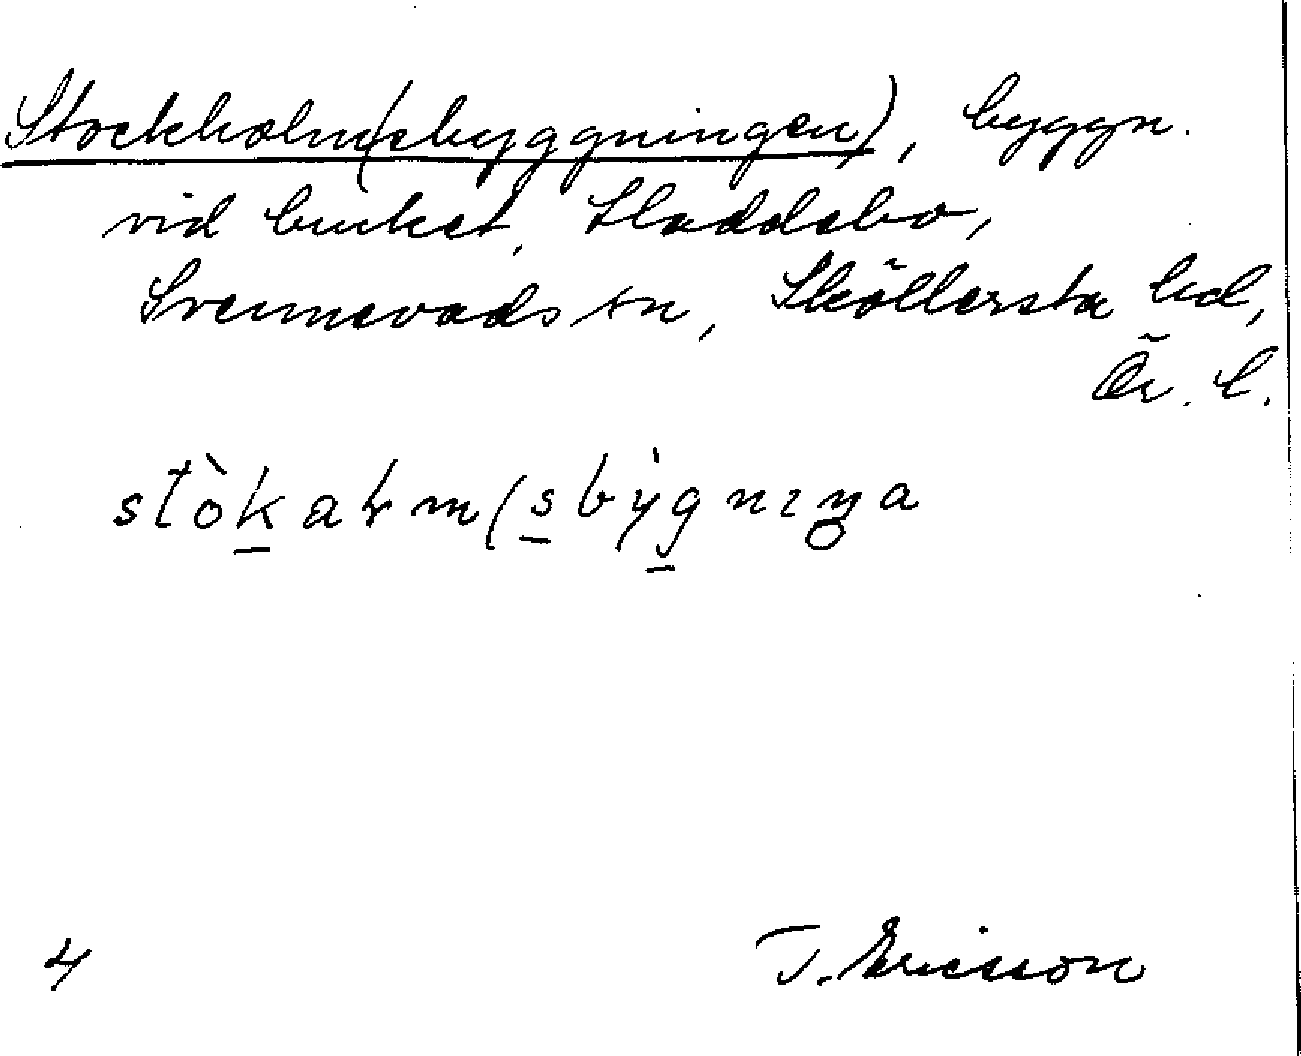 Stockholm(sbyggningen), byggn.
vid bruket, Skaddebo,
Svennevads sn, Sköllersta hd,
Ör. l.
stòkahm(sbỳgnıŋa
4
T. Ericsson